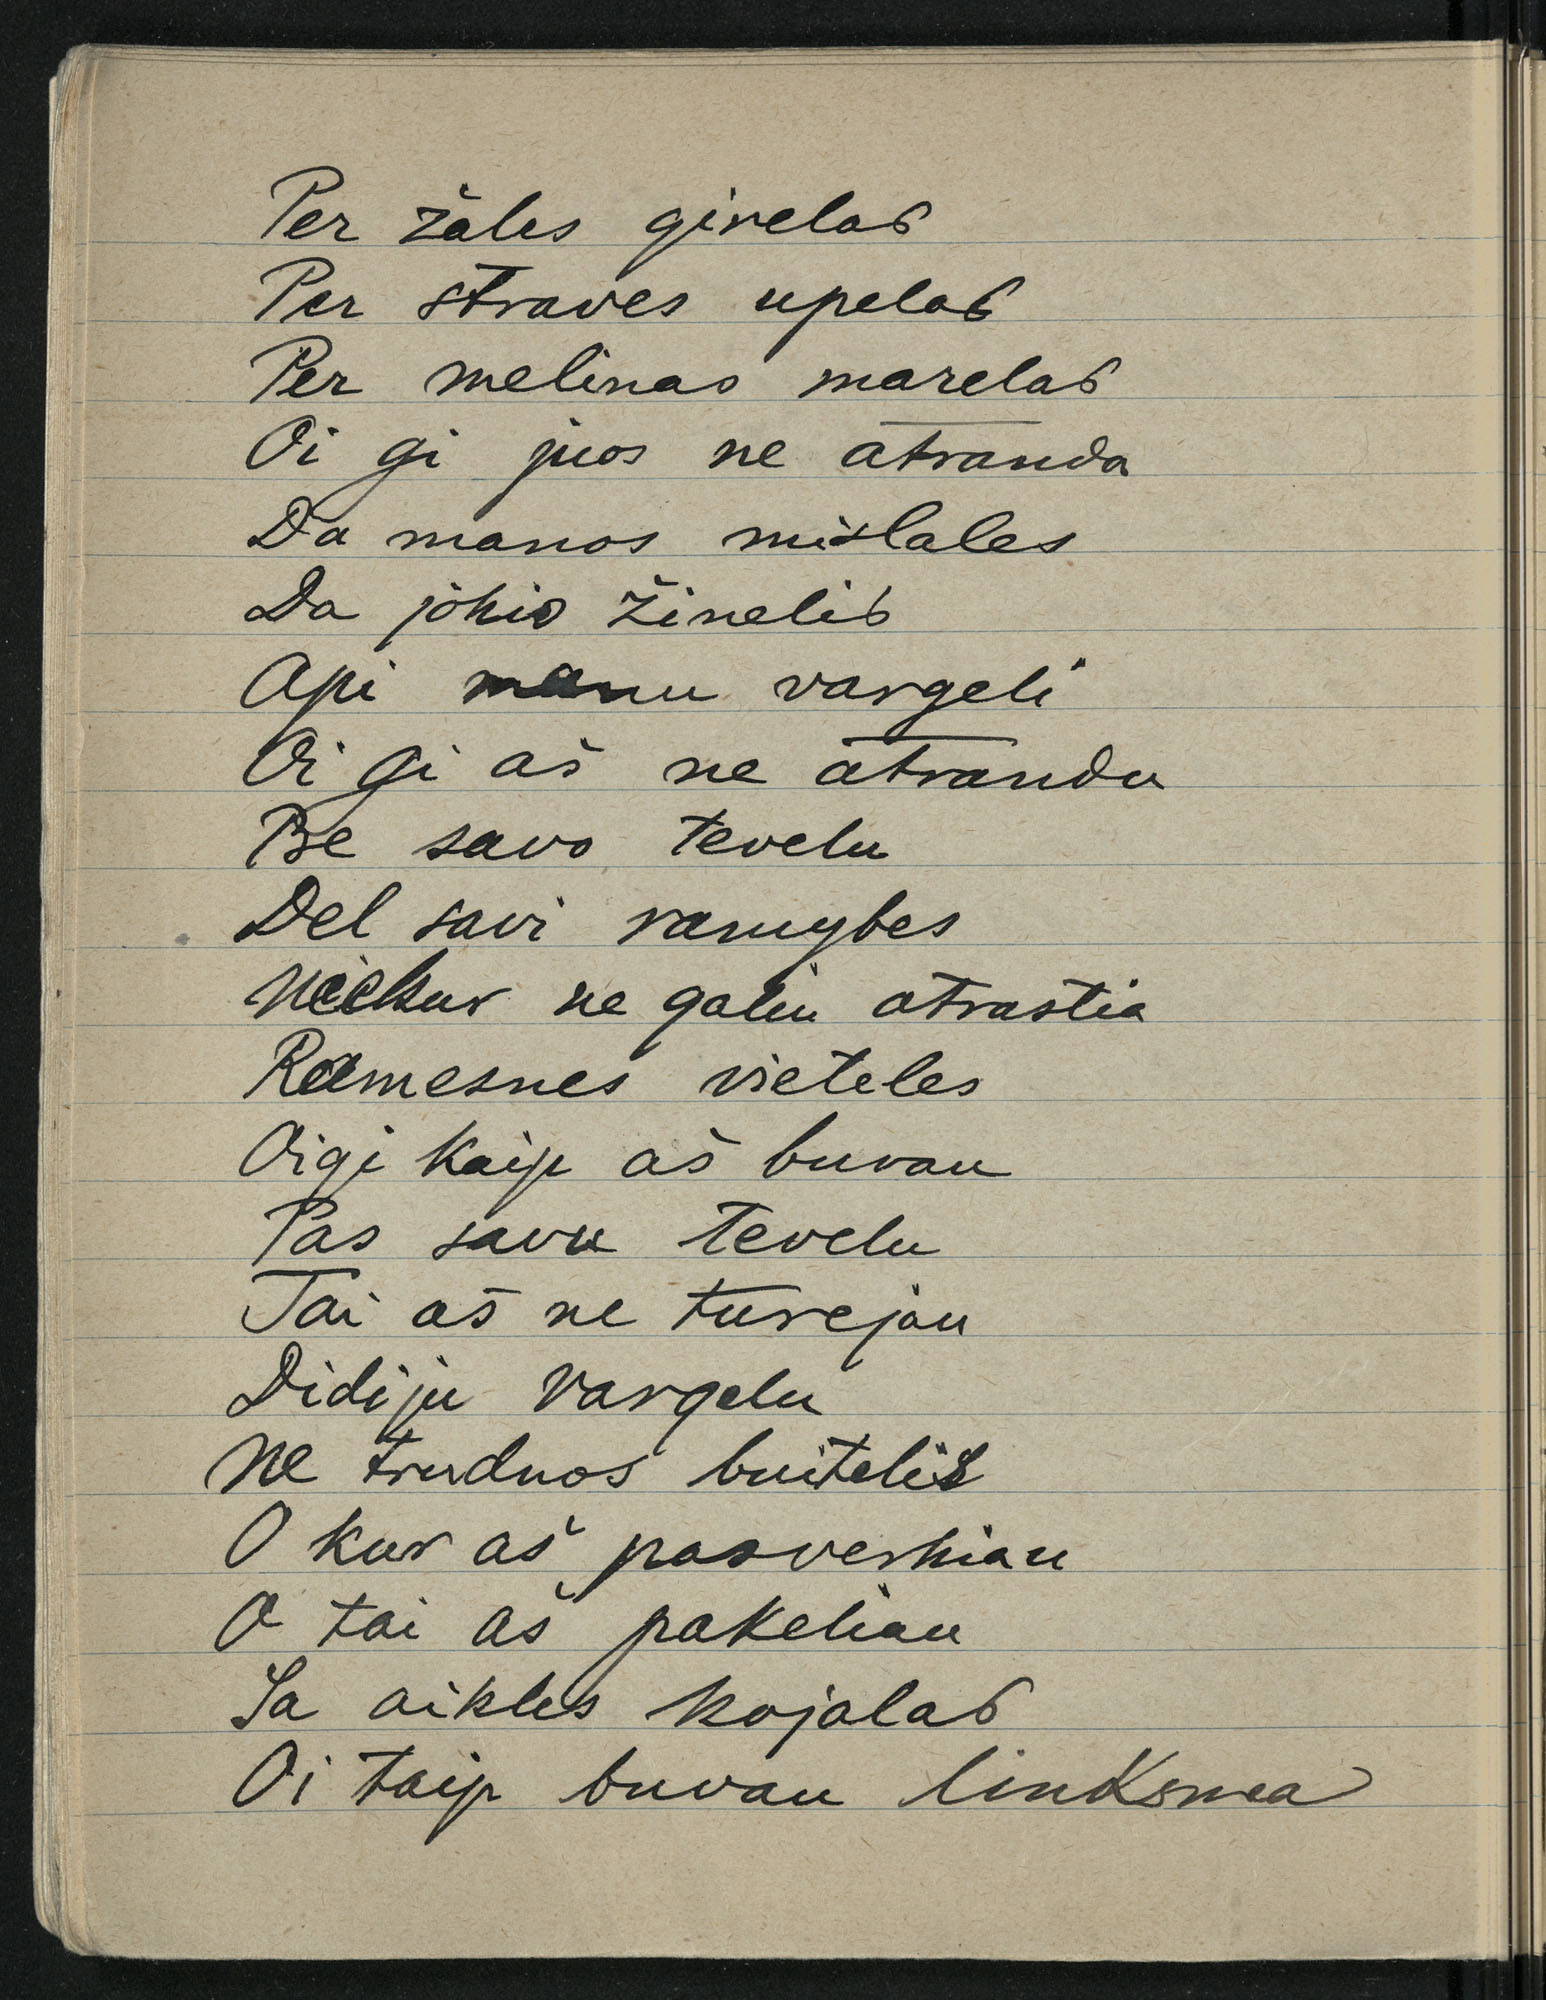 Per žales girelas
Per straves upelas
Per melinas marelas
Oi gi juos ne atranda
Da manos mislales
Da jokio žinelis
Api manu vargeli
Oi gi aš ne atrandu
Be savo tevelu
Del savi ramybes
Niekur ne galiu atrastia
Ramesnes vieteles
Oigi kaip aš buvau
Pas savu tevelu
Tai aš ne turejau
Didiju vargelu
Ne trudnos buitelis
O kur aš pasverkiau
O tai aš pakeliau
Sa aikles kojalas
Oi taip buvau linksma